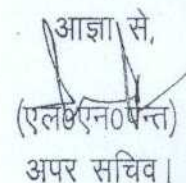 आज्ञा से,
(एल0एन0पन्त)
अपर सचिव।